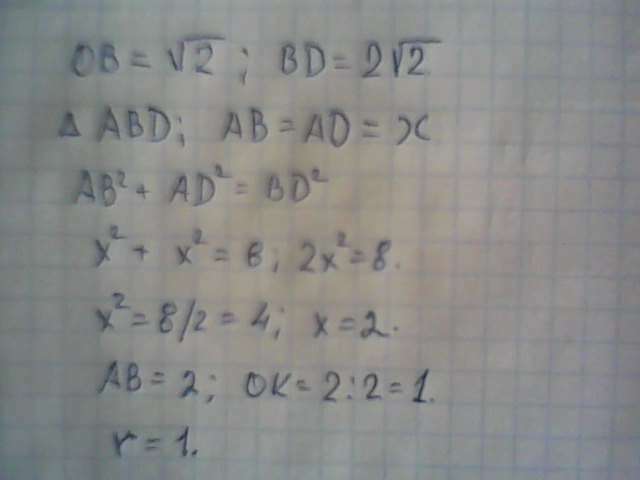 OB = √2 ; BD = 2√2
Δ ABD; AB = AD = x
AB² + AD² = BD²
x² + x² = 8; 2x² = 8.
x² = 8/2 = 4; x = 2.
AB = 2; OK = 2:2 = 1.
r = 1.